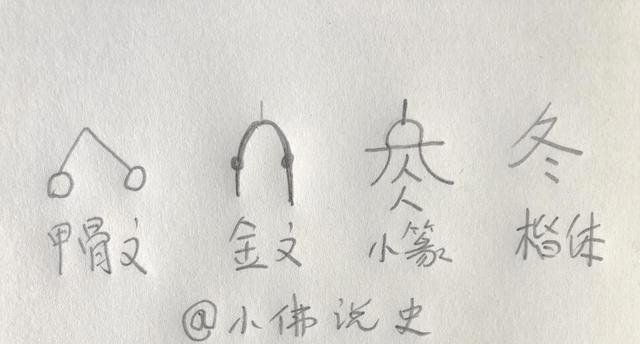 冬
甲骨文 金文 小篆 楷体
@小佛说史